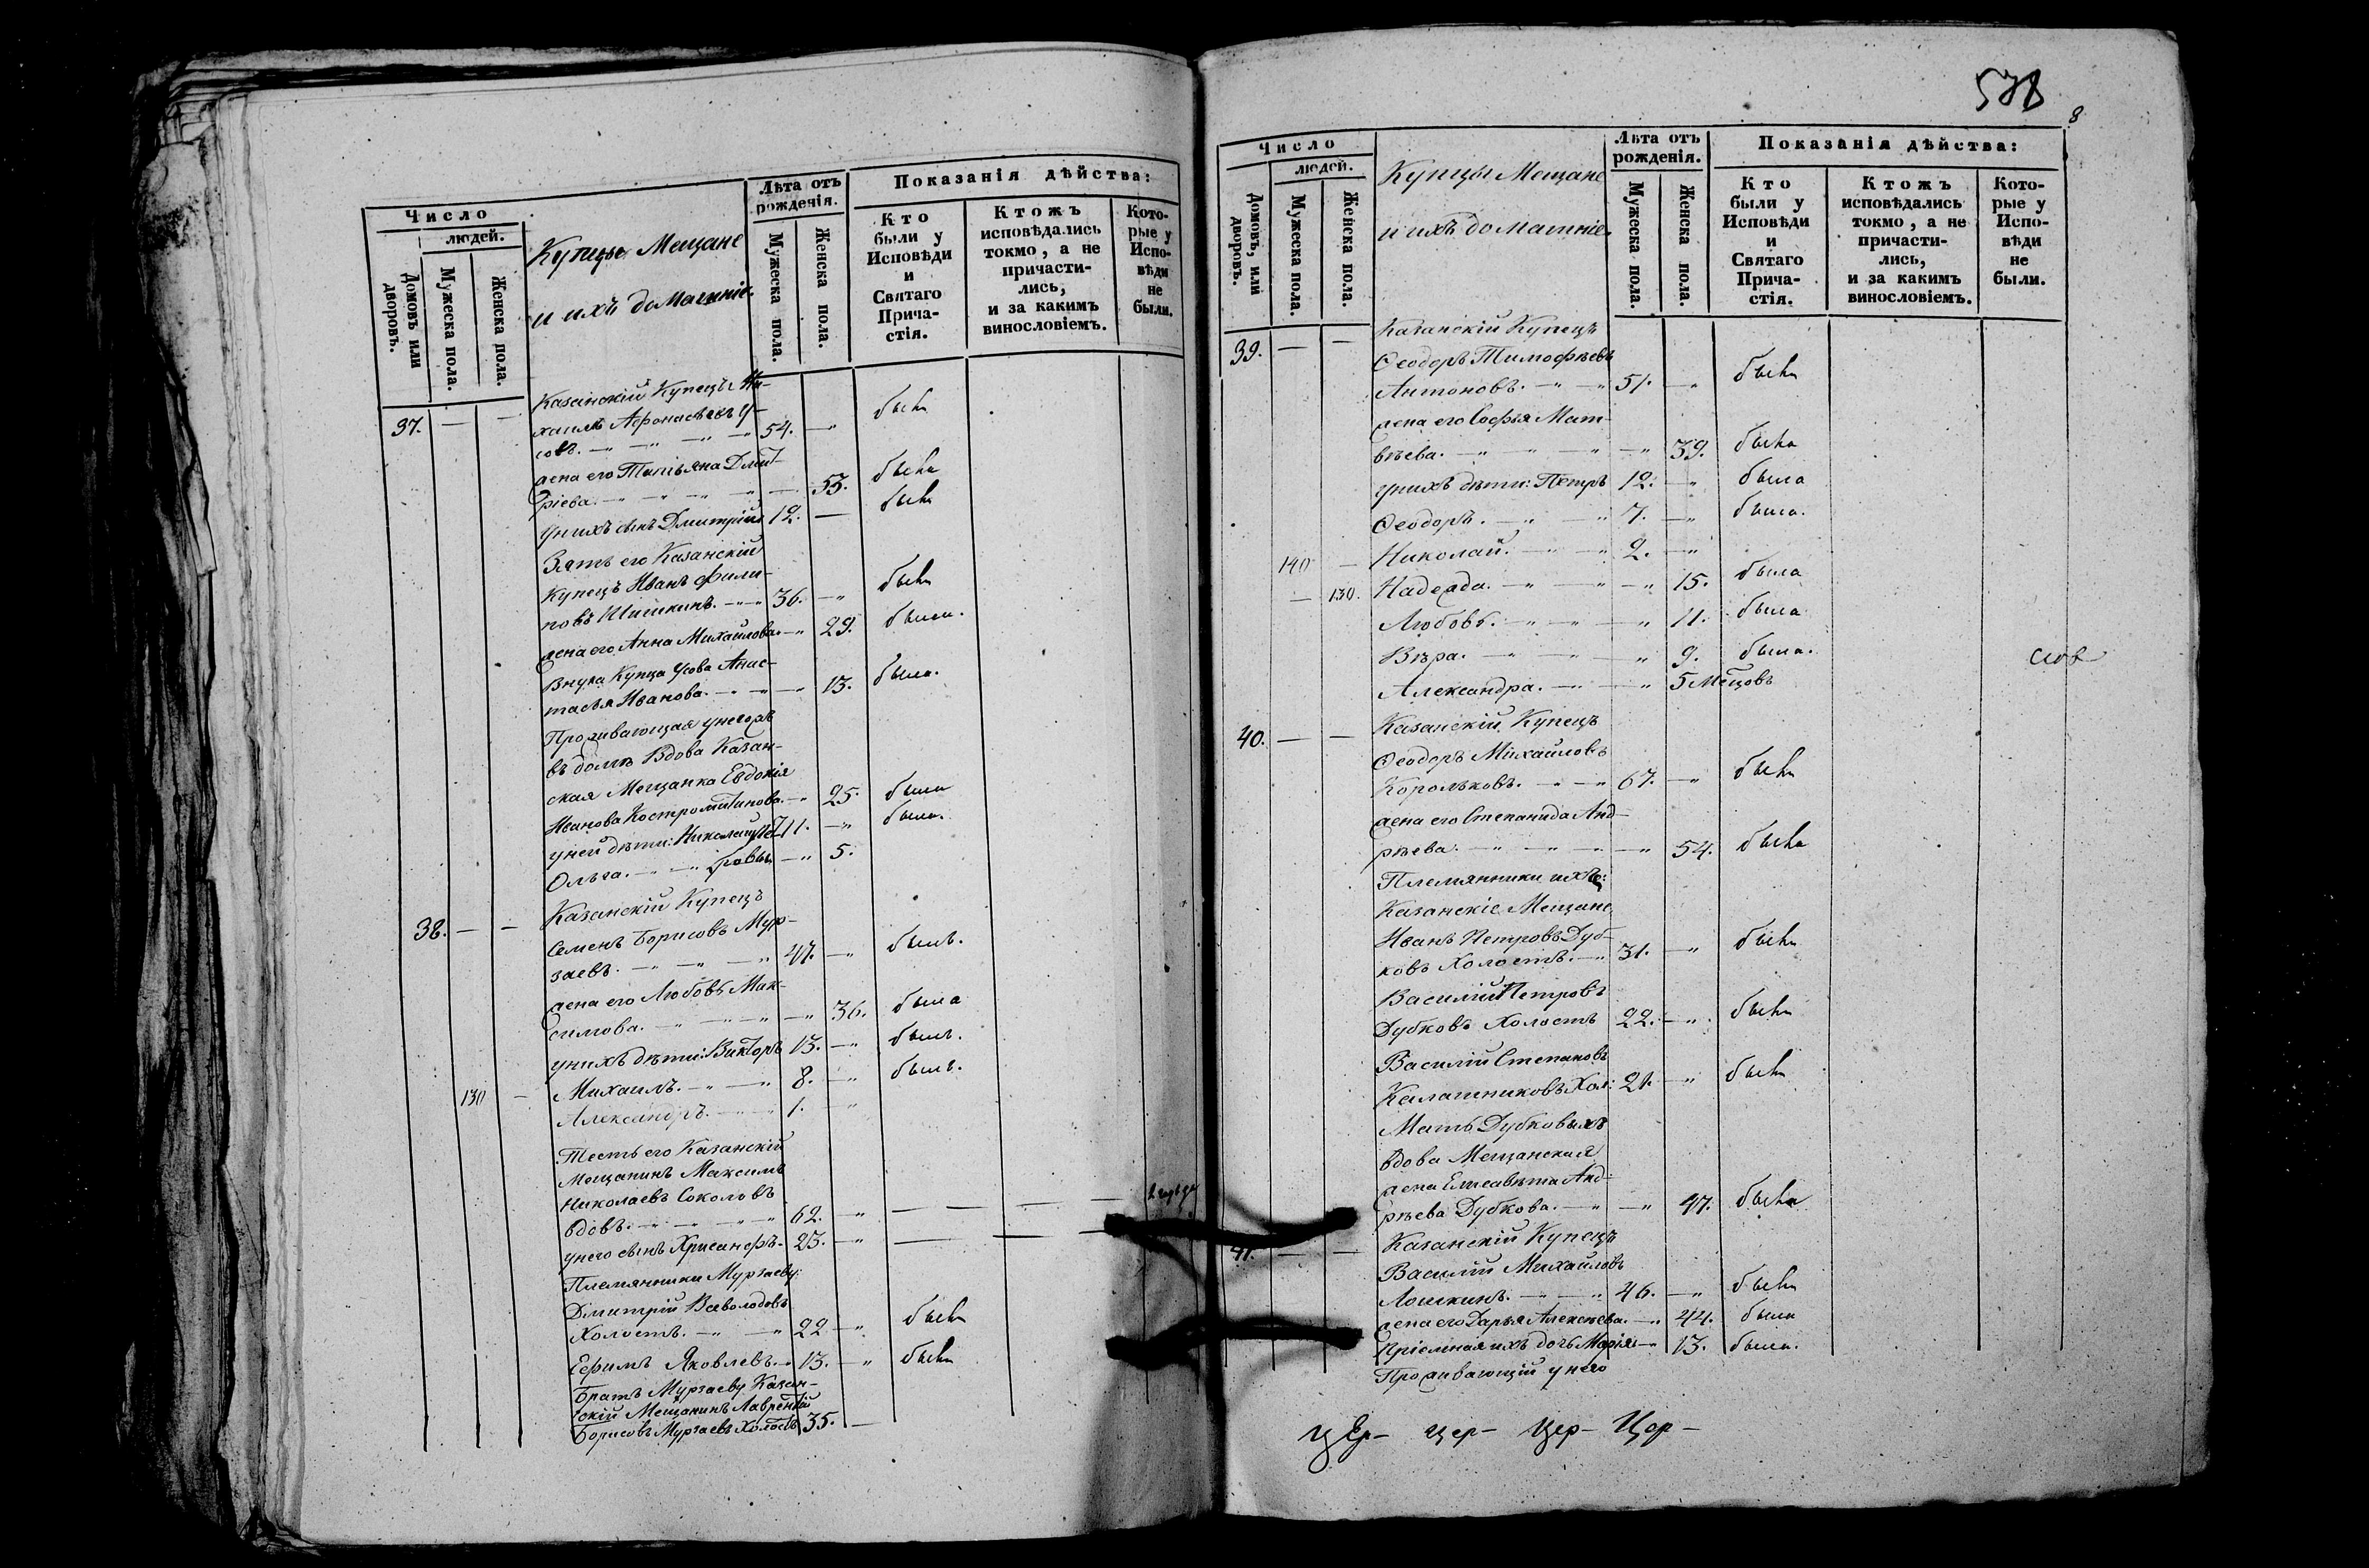 Число
людей.
Домовъ или дворовъ.
Мужеска пола.
Женска пола.
Купцы Мещане
и ихъ домашніе.
Лѣта отъ рожденія.
Мужеска пола.
Женска пола.
Показанія дѣйства:
Кто были у Исповѣди и Святаго Прича-стія.
Ктожъ исповѣдались токмо, а не причасти-лись, и за какимъ винословіемъ.
Кото-рые у Испо-вѣди не были.
37. — — Казанскій Купецъ Ми-
хаилъ Афонасьевъ У-
совъ. 54. — былъ
жена его Татьяна Дмит-
ріева. — 53. была
у нихъ сынъ Дмитрій 12. — былъ
Зять его Казанскій
Купецъ Иванъ Фили-
повъ Шишкинъ. 36. былъ
жена его Анна Михайлова. 29. была.
Внука Купца Усова Анас-
тасья Иванова. 13. была.
Проживающая у него
въ домѣ Вдова Казан-
ская Мещанка Евдокія
Иванова Костромитинова. 25. была
у ней дѣти: Николай 11. была.
Ольга. 5.
38. — — Казанскій Купецъ
Семенъ Борисовъ Мур-
заевъ. 47. былъ.
жена его Любовь Мак-
симова. 36. была
у нихъ дѣти: Викторъ 13. былъ.
Михаилъ. 8. былъ.
130 — Александръ. 1.
Тесть его Казанскій
Мещанинъ Максимъ
Николаевъ Соколовъ
вдовъ. 62. — —
у него сынъ Хрисанфъ. 23. — —
Племянники Мурзаеву:
Дмитрій Всеволодовъ
Холостъ. 22 былъ
Ефимъ Яковлевъ. 13. былъ
Братъ Мурзаеву Казан-
скій Мещанинъ Лаврентій
Борисовъ Мурзаевъ Холостъ 35. —
578
8
Число
людей.
Домовъ, или дворовъ.
Мужеска пола.
Женска пола.
Купцы Мещане
и ихъ домашніе.
Лѣта отъ рожденія.
Мужеска пола.
Женска пола.
Показанія дѣйства:
Кто были у Исповѣди и Святаго Прича-стія.
Ктожъ исповѣдались токмо, а не причасти-лись, и за какимъ винословіемъ.
Кото-рые у Испо-вѣди не были.
39. — — Казанскій Купецъ
Ѳеодоръ Тимофѣевъ
Антоновъ. 51. былъ
жена его Софья Мат-
вѣева. 39. была
у нихъ дѣти: Петръ 12. была
Ѳеодоръ. 7. была.
140 — Николай. 2.
— 130. Надежда. 15. была
Любовь. 11. была
Вѣра. 9. была.
Александра. 5 Мѣцовъ
40. — — Казанскій Купецъ
Ѳеодоръ Михайловъ
Корольковъ. 67. былъ
жена его Степанида Анд-
рѣева. 54. была
Племянники ихъ:
Казанскіе Мещане,
Иванъ Петровъ Дуб-
ковъ Холостъ. 31. былъ
Василій Петровъ
Дубковъ Холостъ 22. былъ
Василій Степановъ
Калашниковъ Хол: 21. былъ
Мать Дубковыхъ
вдова Мещанская
жена Елисавѣта Анд-
рѣева Дубкова. 47. была
41. — — Казанскій Купецъ
Василій Михайловъ
Лошкинъ. 46. былъ
жена его Дарья Алексѣева. 44. была
Пріемная ихъ дочь Марія 13. была.
Проживающій у него
цер- цер- Цер- Цер-